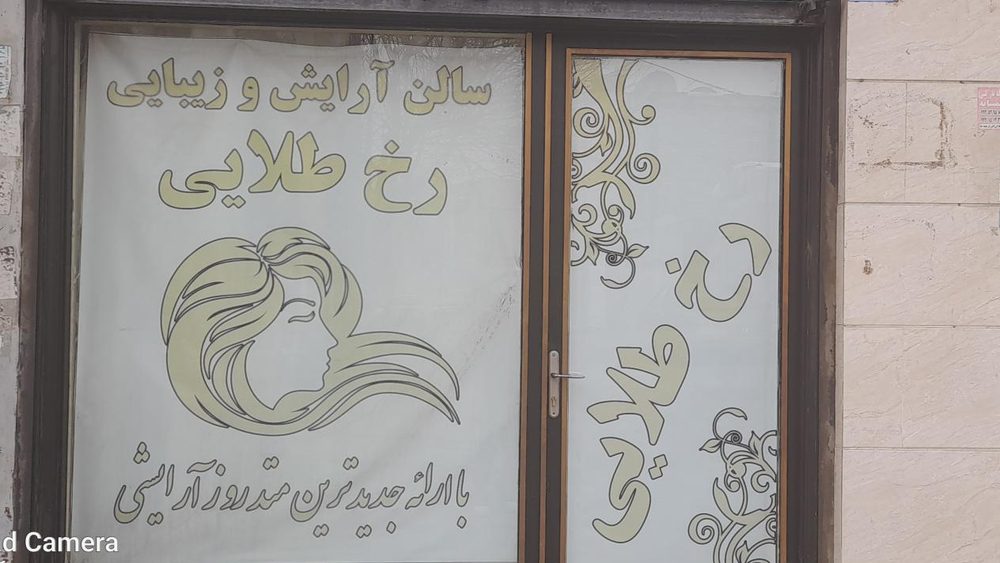 سالن آرایش و زیبایی
رخ طلایی
با ارائه جدیدترین متد روز آرایشی
رخ طلایی
d Camera